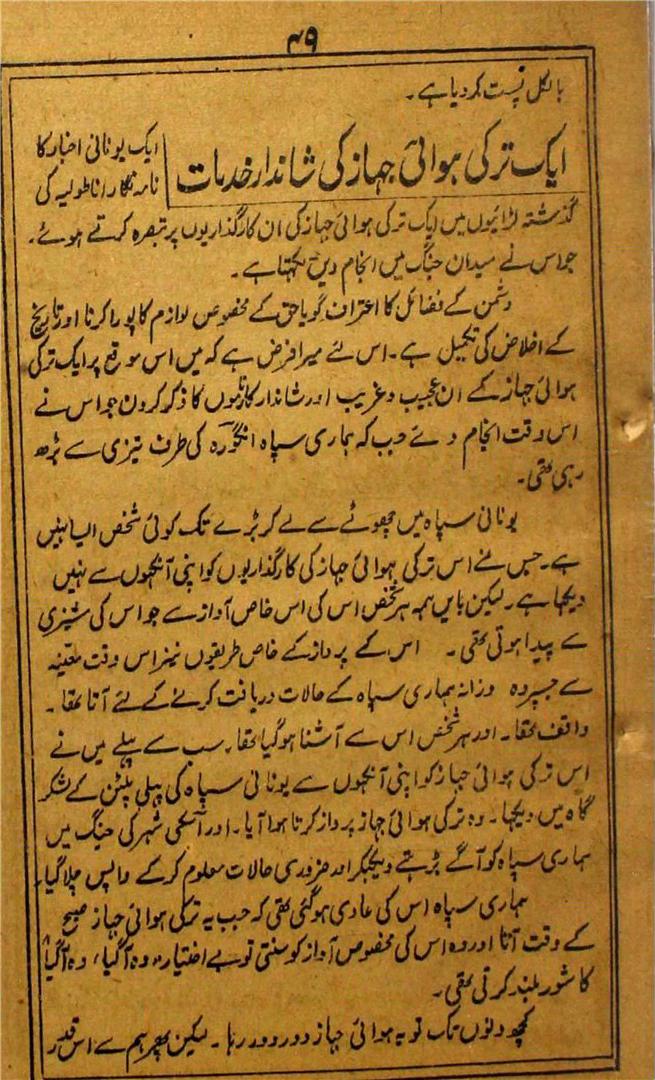 ۴۹
بالکل پست کردیا ہے۔
ایک ترکی ہوائی جہاز کی شاندار خدمات
ایک یونانی اخبار کا
نامہ نگار اناطولیہ کی
گذشتہ لڑائیوں میں ایک ترکی ہوائی جہاز کی ان کارگذاریوں پر تبصرہ کرتے ہوئے۔
جو اس نے میدان جنگ میں انجام دیں لکھتا ہے۔
دشمن کے فضائل کا اعتراف گویا حق کے مخصوص لوازم کا پورا کرنا اور تاریخ
کے اخلاص کی تکمیل ہے۔ اس لئے میرا فرض ہے کہ میں اس موقع پر ایک ترکی
ہوائی جہاز کے ان عجیب و غریب اور شاندار کارناموں کا ذکر کرون جو اس نے
اس وقت انجام دئے جب کہ ہماری سپاہ انگورہ کی طرف تیزی سے بڑھ
رہی تھی۔
یونانی سپاہ میں چھوٹے سے لے کر بڑے تک کوئی شخص ایسا نہیں
ہے۔ جس نے اس ترکی ہوائی جہاز کی کارگذاریوں کو اپنی آنکھوں سے نہیں
دیکھا ہے۔ لیکن بایں ہمہ ہر شخص اس کی اس خاص آواز سے جو اس کی مشینری
سے پیدا ہوتی تھی۔ اس کے پرواز کے خاص طریقوں نیز اس وقت معینہ
سے جسپر وہ وزانہ ہماری سپاہ کے حالات دریافت کرنے کے لئے آتا تھا۔
واقف تھا۔ اور ہر شخص اس سے آشنا ہو گیا تھا۔ سب سے پہلے میں نے
اس ترکی ہوائی جہاز کو اپنی آنکھوں سے یونانی سپاہ کی پہلی پلٹن کے لشکر
گاہ میں دیکھا۔ وہ ترکی ہوائی جہاز پرواز کرتا ہوا آیا۔ اور اسکی شہر کی جنگ میں
ہماری سپاہ کو آگے بڑہتے دیکھکر اور ضروری حالات معلوم کرکے واپس چلا گیا۔
ہماری سپاہ اس کی عادی ہو گئی تھی کہ جب یہ ترکی ہوائی جہاز صبح
کے وقت آتا اور وہ اس کی مخصوص آواز کو سنتی تو بے اختیار "وہ آگیا، وہ آگیا"
کا شور بلند کرتی تھی۔
کچھ دنوں تک تو یہ ہوائی جہاز دور دور رہا۔ لیکن پھر ہم سے اس قدر